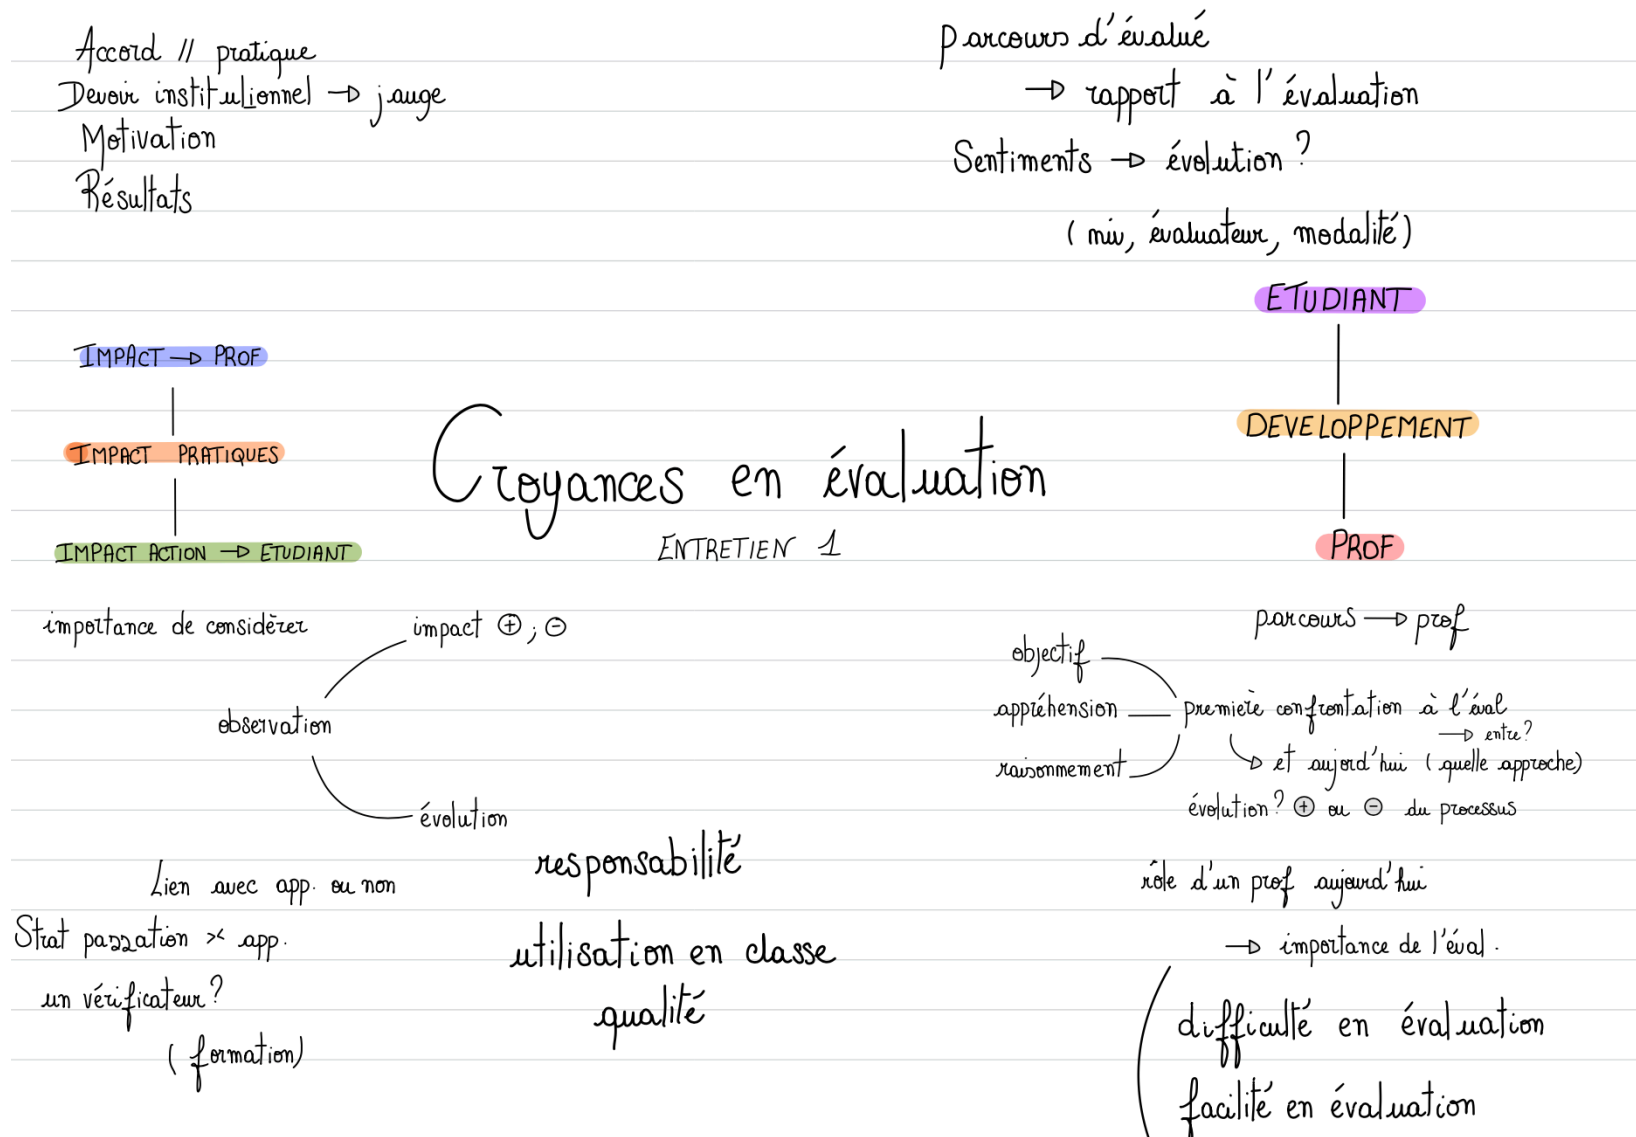 Accord // pratique
Devoir institutionnel → jauge
Motivation
Résultats
Parcours d'évalué
→ rapport à l'évaluation
Sentiments → évolution ?
( niv, évaluateur, modalité )
ETUDIANT
DEVELOPPEMENT
PROF
IMPACT → PROF
IMPACT PRATIQUES
IMPACT ACTION → ETUDIANT
Croyances en évaluation
ENTRETIEN 1
importance de considérer
impact ⊕ ; ⊖
observation
évolution
Lien avec app. ou non
Strat passation >< app.
un vérificateur ?
( formation)
responsabilité
utilisation en classe
qualité
parcours → prof
objectif
appréhension
raisonnement
première confrontation à l'éval
→ entre ?
→ et aujord'hui ( quelle approche)
évolution ? ⊕ ou ⊖ du processus
rôle d'un prof aujourd'hui
→ importance de l'éval.
difficulté en évaluation
facilité en évaluation